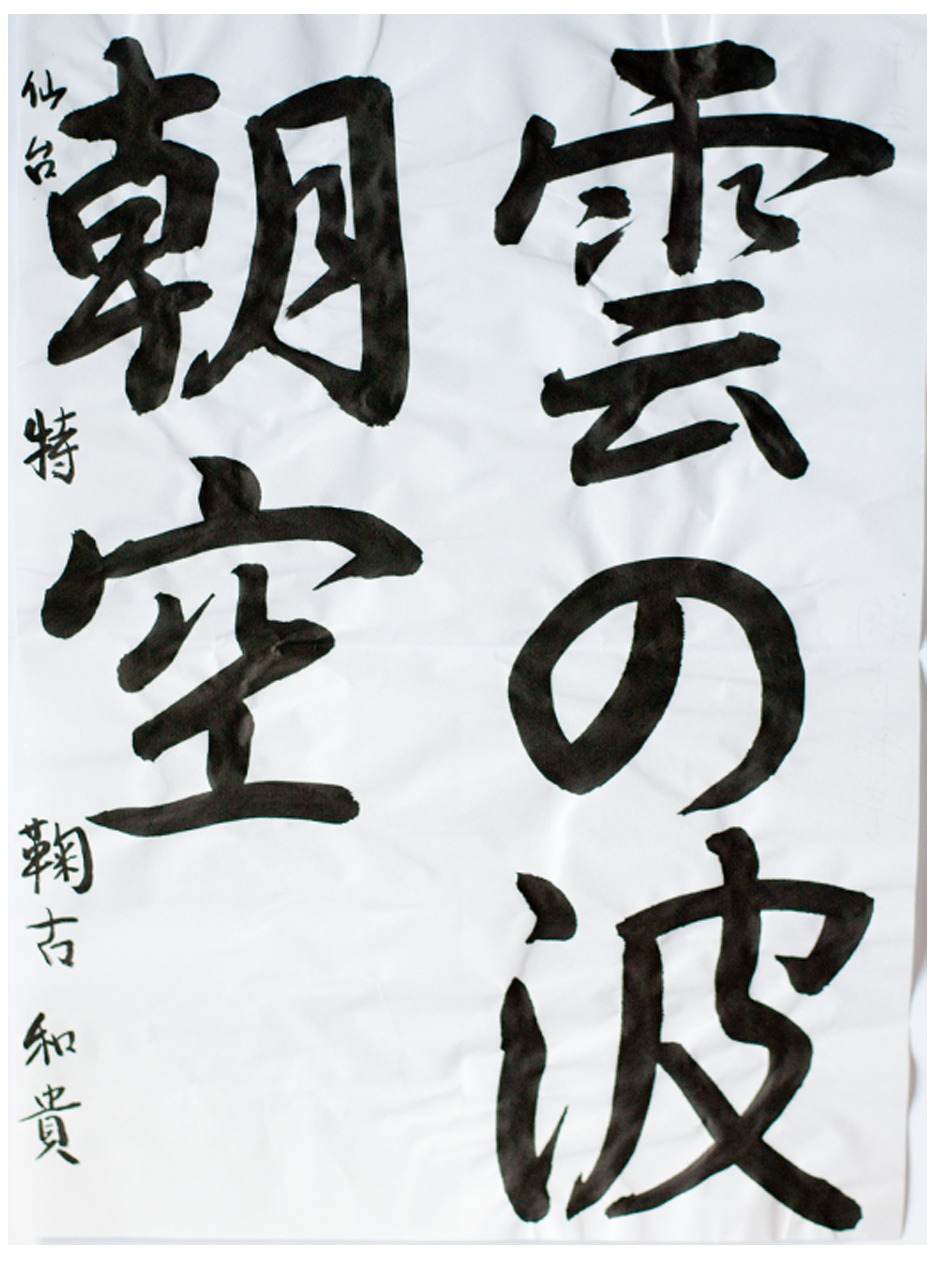 雲の波
朝空
仙台 特 鞠古 和貴